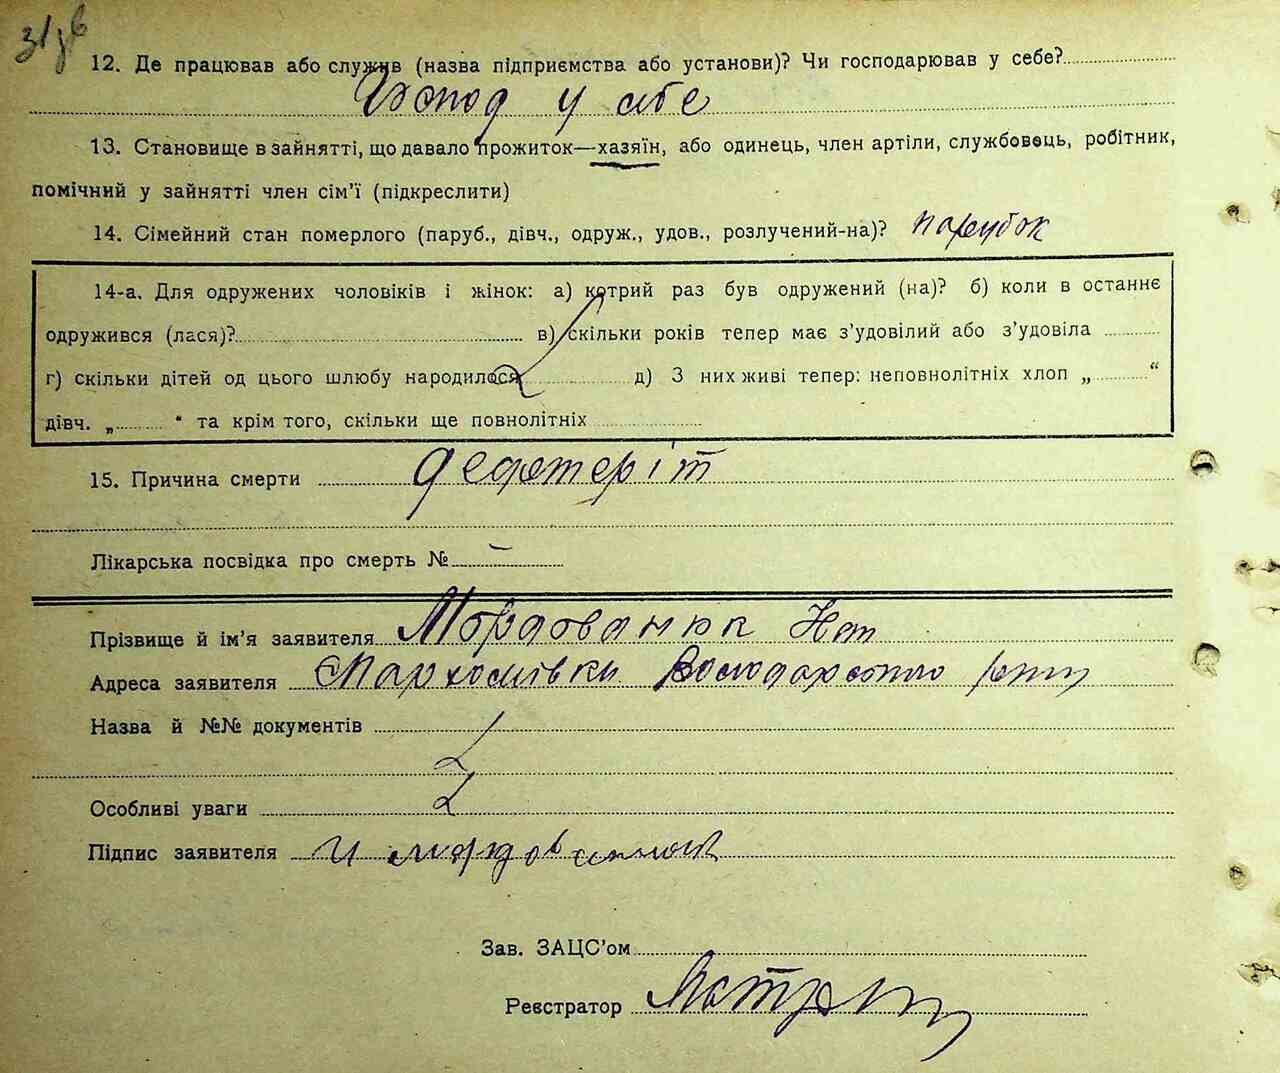 31/в
12. Де працював або служив (назва підприємства або установи)? Чи господарював у себе?
Господ у себе
13. Становище в зайнятті, що давало прожиток—хазяїн, або одинець, член артіли, службовець, робітник,
помічний у зайнятті член сім’ї (підкреслити)
14. Сімейний стан померлого (паруб., дівч., одруж., удов., розлучений-на)? парубок
14-а. Для одружених чоловіків і жінок: а) котрий раз був одружений (на)? б) коли в останнє
одружився (лася)? в) скільки років тепер має з’удовілий або з’удовіла
г) скільки дітей од цього шлюбу народилося д) З них живі тепер: неповнолітніх хлоп „ “
дівч. „ “ та крім того, скільки ще повнолітніх
15. Причина смерти дефтеріт
Лікарська посвідка про смерть № —
Прізвище й ім’я заявителя Мордованюк
Адреса заявителя Пархомівки Володарського
Назва й №№ документів
Особливі уваги
Підпис заявителя
Зав. ЗАЦС’ом
Реєстратор